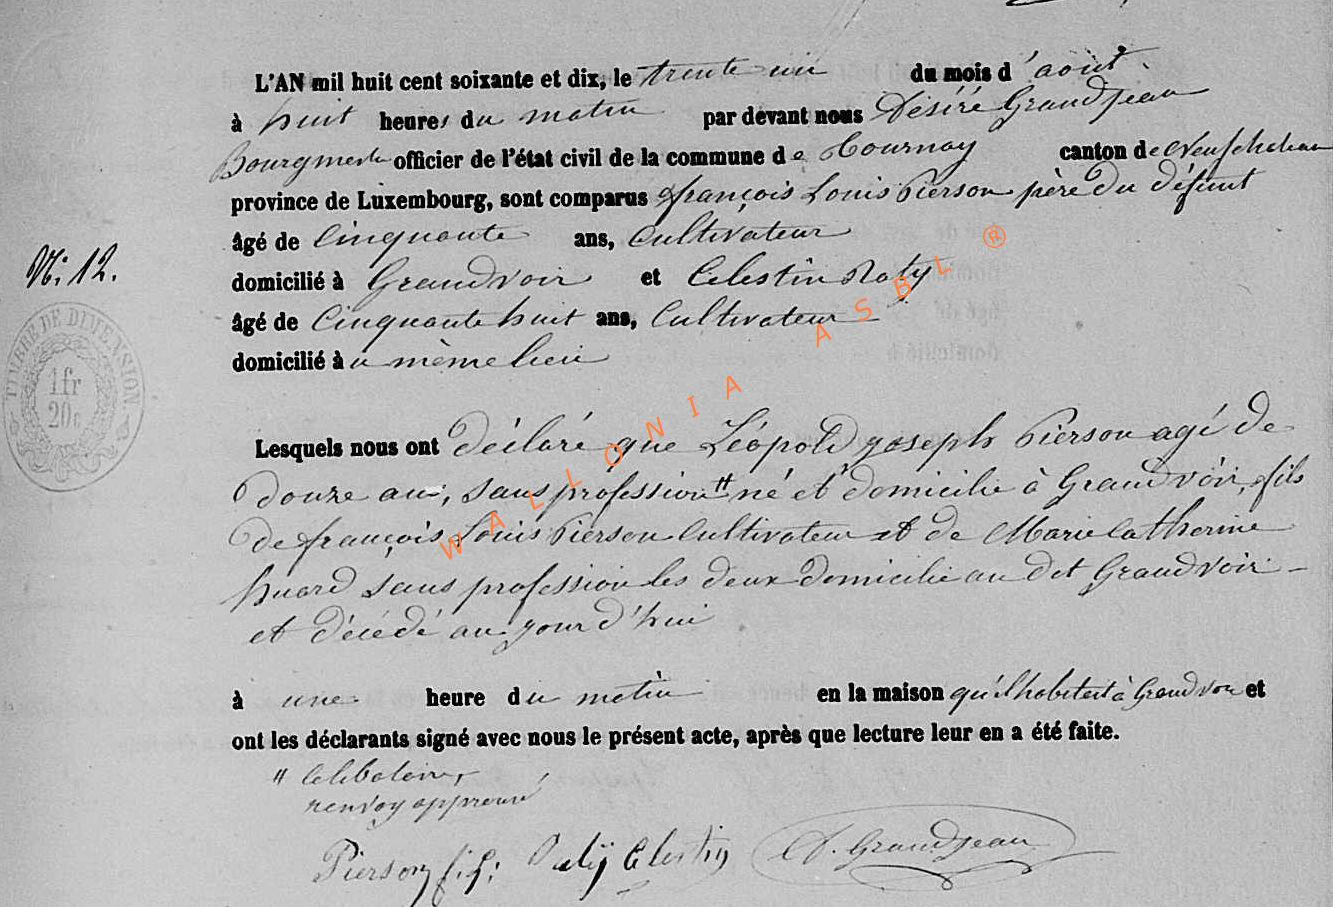 L'AN mil huit cent soixante et dix, le trente un du mois d'août
à huit heures du matin par devant nous Désiré Grandjean
Bourgmestre officier de l'état civil de la commune de Tournay canton de Neufchateau
province de Luxembourg, sont comparus françois Louis Pierson père du défunt
âgé de Cinquante ans, Cultivateur
domicilié à Grandvoir et Celestin Raty
N: 12.
âgé de Cinquante huit ans, Cultivateur
domicilié à u même lieu
TIMBRE DE DIMENSION
1fr
20c
WALLONIA ASBL ®
Lesquels nous ont déclaré que Léopold joseph Pierson agé de
douze an, sans profession " né et domicilié à Grandvoir, fils
de françois Louis Pierson Cultivateur et de Marie Catherine
huard sans profession les deux domicilié au dit Grandvoir -
et décédé aujourd'hui
à une heure du matin en la maison qu'il habitait à Grandvoir et
ont les déclarants signé avec nous le présent acte, après que lecture leur en a été faite.
" Celibataire,
renvoy approuvé
Pierson f. L: Raty Celestin D. Grandjean